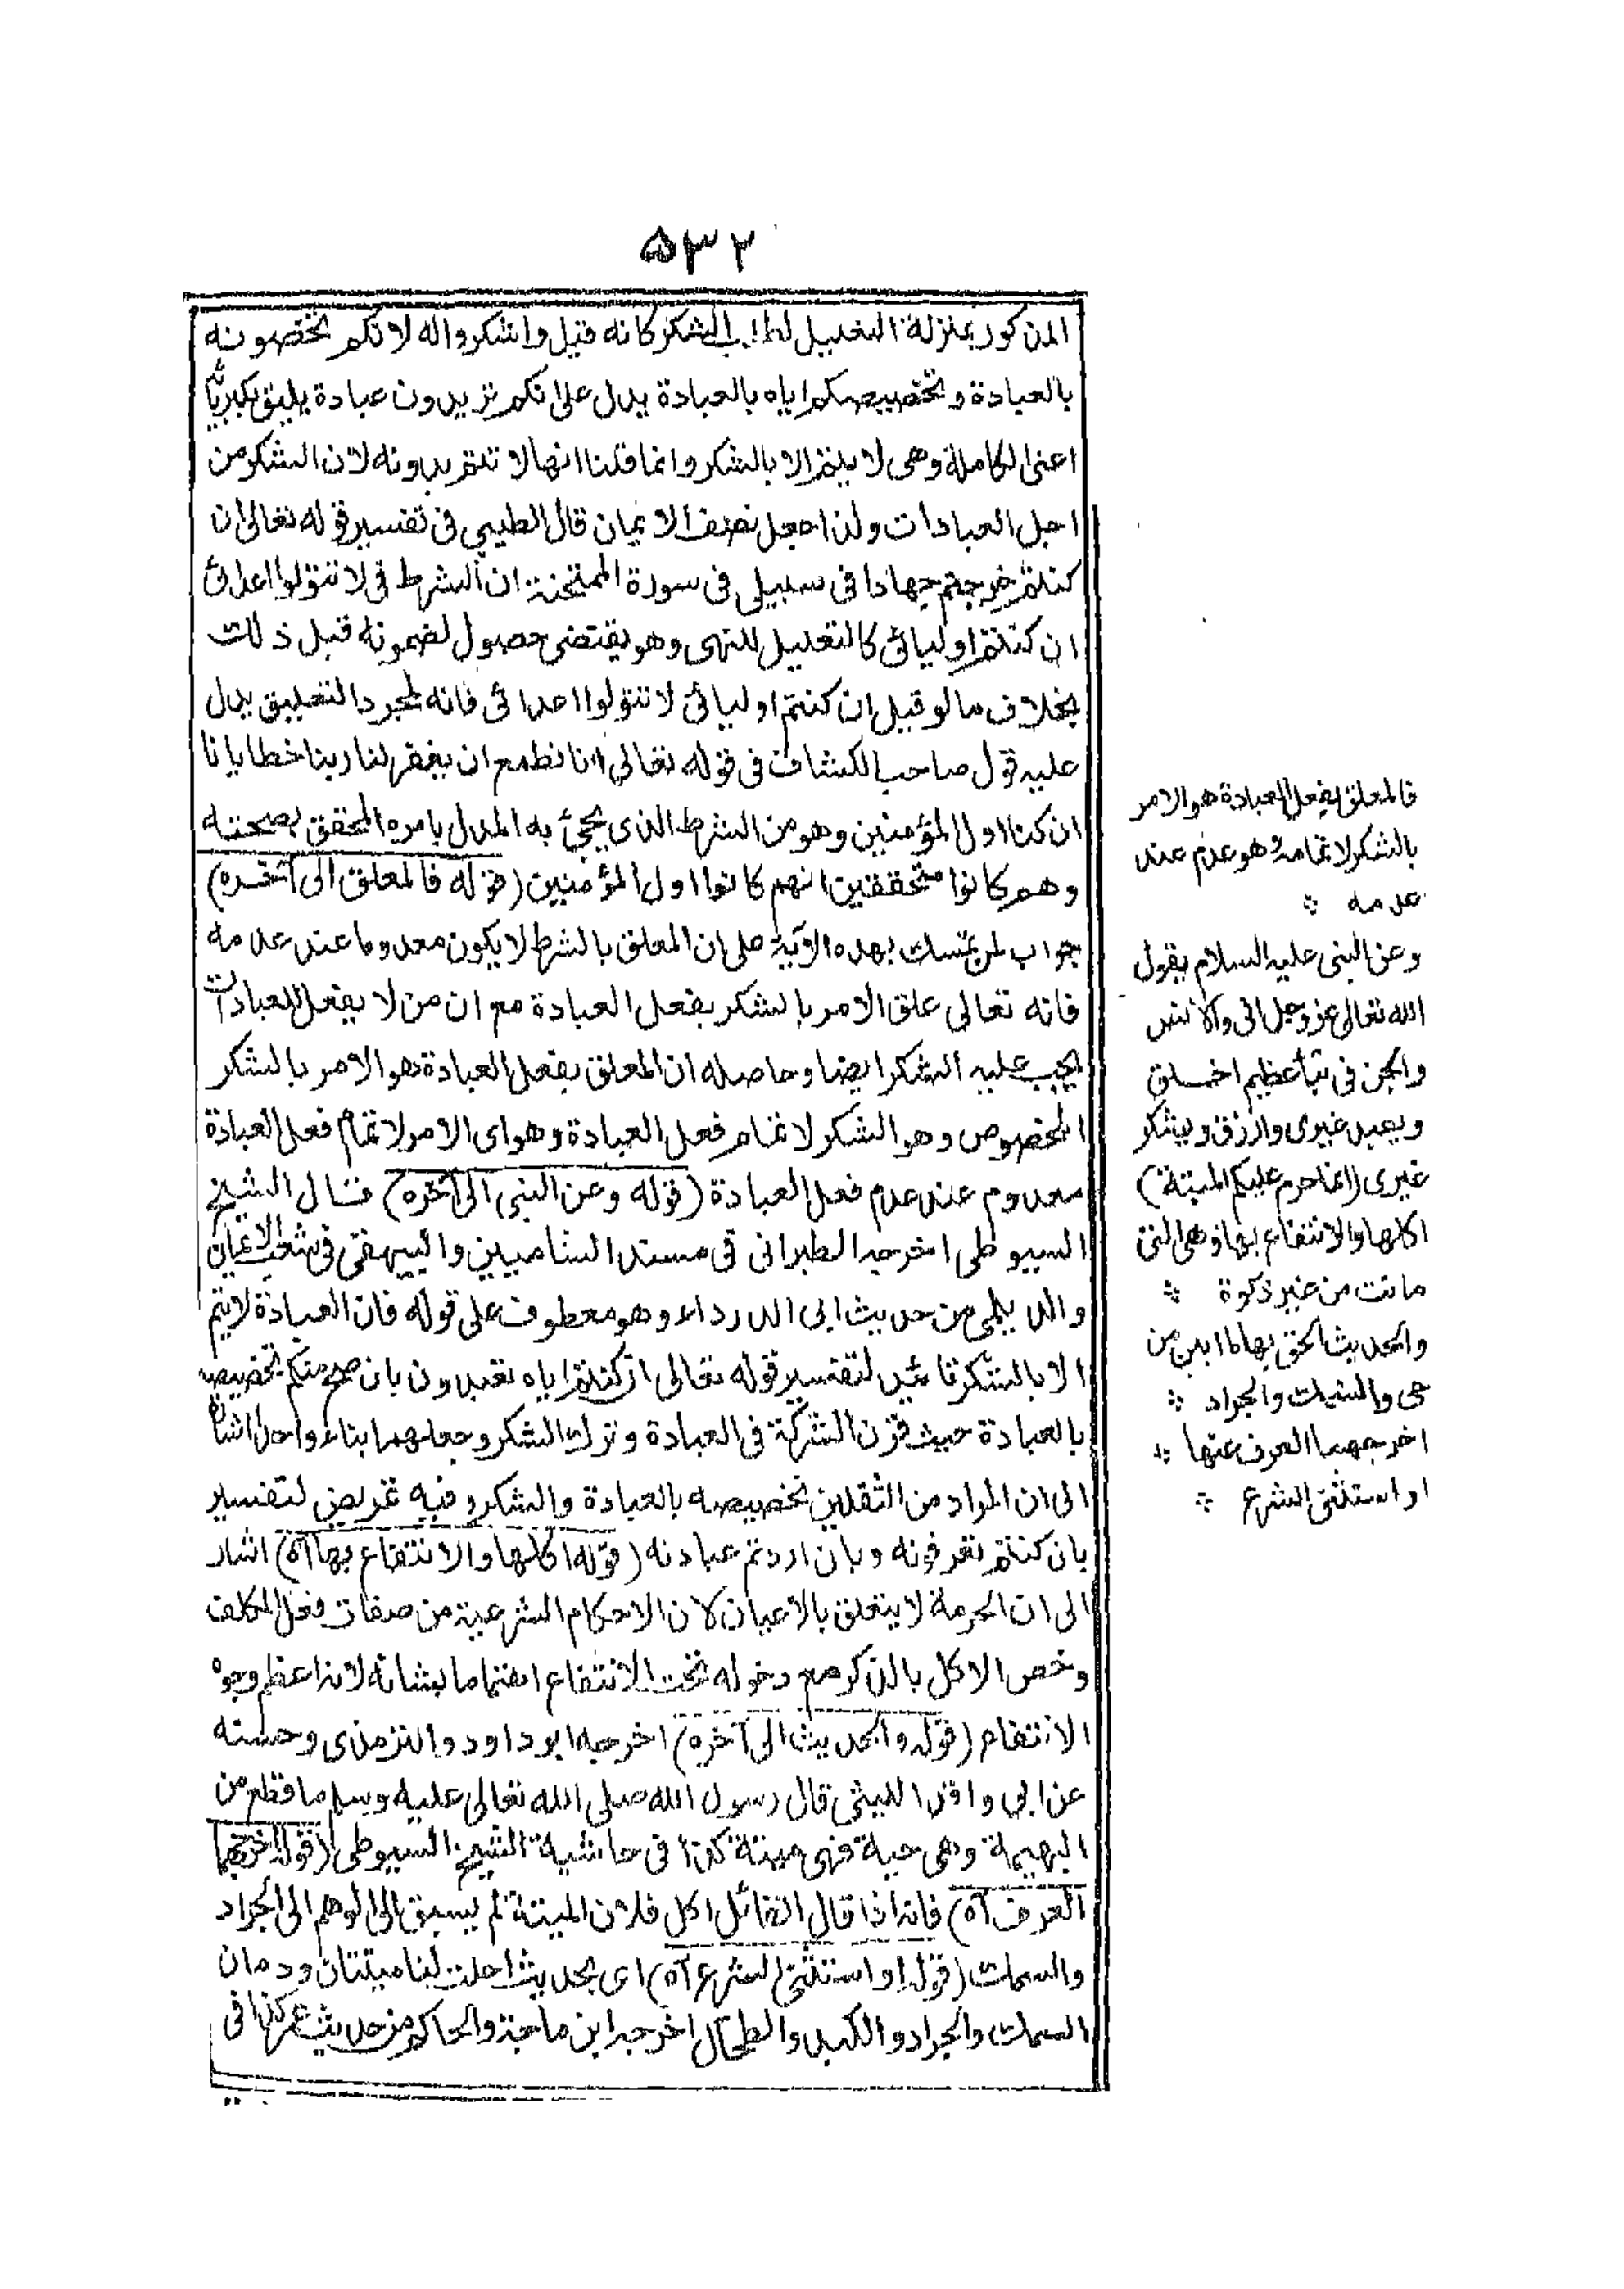 ٥٣٢
المذكور بمنزلة التعليل لطلب الشكر كانه قيل واشكروا له لانكم تخصونه
بالعبادة وتخصيصكم اياه بالعبادة يدل على انكم تريدون عبادة يليق بكبريائه
اعنى الكاملة وهى لا يتم الا بالشكر وانما قلنا انها لا تتم بدونه لان الشكر من
اجل العبادات ولذا جعل نصف الايمان قال الطيبى فى تفسير قوله تعالى ان
كنتم خرجتم جهادا فى سبيلى فى سورة الممتحنة ان الشرط فى لا تتولوا اعدائى
ان كنتم اوليائى كالتعليل للنهى وهو يقتضى حصول لضمونه قبل ذلك
بخلاف ما لو قيل ان كنتم اوليائى لا تتولوا اعدائى فانه لمجرد التعليق يدل
عليه قول صاحب الكشاف فى قوله تعالى انا نطمع ان يغفر لنا ربنا خطايانا
ان كنا اول المؤمنين وهو من الشرط الذى يجئ به المدل بامره المحقق بصحته
وهم كانوا متحققين انهم كانوا اول المؤمنين (قوله فالمعلق الى آخره)
جواب لمن يتمسك بهذه الآية على ان المعلق بالشرط لا يكون معدوما عند عدمه
فانه تعالى علق الامر بالشكر بفعل العبادة مع ان من لا يفعل العبادات
يجب عليه الشكر ايضا وحاصله ان المعلق بفعل العبادة هو الامر بالشكر
المخصوص وهو الشكر لاتمام فعل العبادة وهو اى الامر لاتمام فعل العبادة
معدوم عند عدم فعل العبادة (قوله وعن النبى الى آخره) قال الشيخ
السيوطى اخرجه الطبرانى فى مسند الشاميين والبيهقى فى شعب الايمان
والديلمى من حديث ابى الدرداء وهو معطوف على قوله فان العبادة لا يتم
الا بالشكر تائيد لتفسير قوله تعالى ان كنتم اياه تعبدون بان صح منكم تخصيصه
بالعبادة حيث قرن الشركة فى العبادة وترك الشكر وجعلهما بناء واحدا اشارة
الى ان المراد من الثقلين تخصيصه بالعبادة والشكر وفيه تمريض لتفسير
بان كنتم تعرفونه وبان اردتم عبادته (قوله اكلها والانتفاع بها آه) اشار
الى ان الحرمة لا يتعلق بالاعيان لان الاحكام الشرعية من صفات فعل المكلف
وخص الاكل بالذكر مع دخوله تحت الانتفاع اهتماما بشانه لانه اعظم وجوه
الانتفاع (قوله والحديث الى آخره) اخرجه ابو داود والترمذى وحسنه
عن ابى واقد الليثى قال رسول الله صلى الله تعالى عليه وسلم ما قطع من
البهيمة وهى حية فهى ميتة كذا فى حاشية الشيخ السيوطى (قوله اخرجهما
العرف آه) فانه اذا قال القائل اكل فلان الميتة لم يسبق الى الوهم الى الجراد
والسمك (قوله او استثنى الشرع آه) اى بحديث احلت لنا ميتتان ودمان
السمك والجراد والكبد والطحال اخرجه ابن ماجة والحاكم من حديث عمر كذا فى
فالمعلق بفعل العبادة هو الامر
بالشكر لاتمامه وهو عدم عند
عدمه
وعن النبى عليه السلام يقول
الله تعالى عز وجل انى والانس
والجن فى نبأ عظيم اخلق
ويعبد غيرى وارزق ويشكر
غيرى (انما حرم عليكم الميتة)
اكلها والانتفاع بها وهى التى
ماتت من غير ذكوة
والحديث الحق بها ما ابين من
حى والسمك والجراد
اخرجهما العرف عنها
او استثنى الشرع